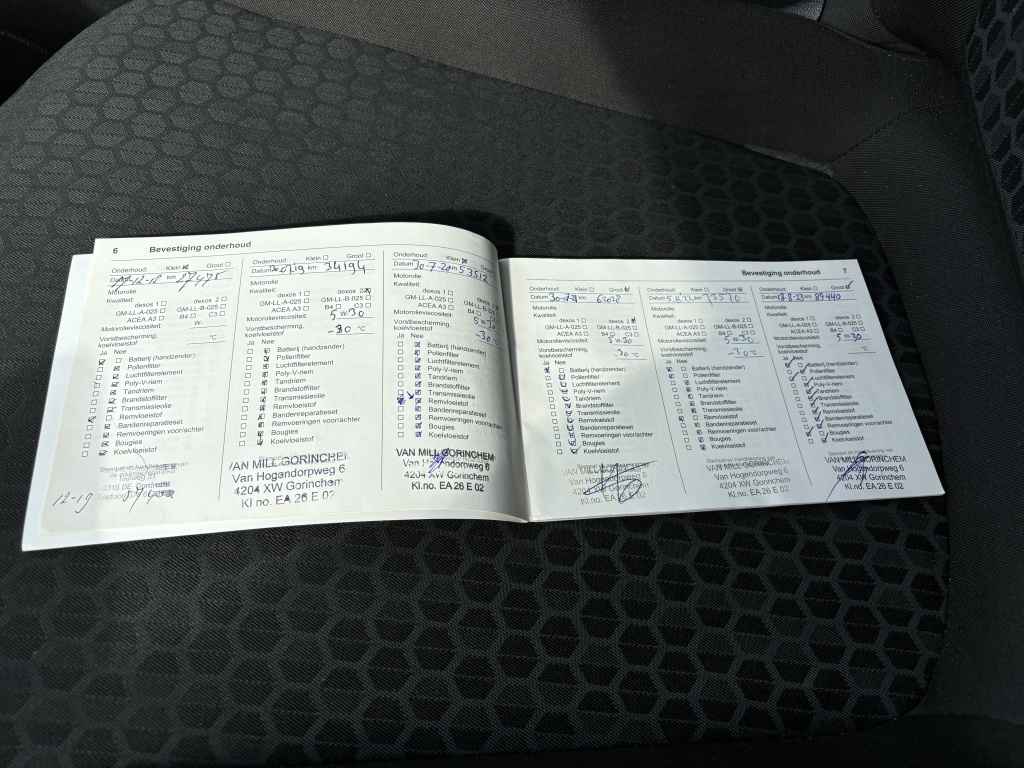 6 Bevestiging onderhoud
Onderhoud: Klein Groot
Datum 12-18 km 27475
Motorolie
Kwaliteit:
dexos 1 dexos 2
GM-LL-A-025 GM-LL-B-025
ACEA A3 B4 C3
Motorolieviscositeit: W-
Vorstbescherming, koelvloeistof °C
Ja Nee
Batterij (handzender)
Pollenfilter
Luchtfilterelement
Poly-V-riem
Tandriem
Brandstoffilter
Transmissieolie
Remvloeistof
Bandenreparatieset
Remvoeringen voor/achter
Bougies
Koelvloeistof
12-19
Onderhoud: Klein Groot
Datum 07-19 km 34194
Motorolie
Kwaliteit:
dexos 1 dexos 2
GM-LL-A-025 GM-LL-B-025
ACEA A3 B4 C3
Motorolieviscositeit: 5 W 30
Vorstbescherming, koelvloeistof -30 °C
Ja Nee
Batterij (handzender)
Pollenfilter
Luchtfilterelement
Poly-V-riem
Tandriem
Brandstoffilter
Transmissieolie
Remvloeistof
Bandenreparatieset
Remvoeringen voor/achter
Bougies
Koelvloeistof
VAN MILL GORINCHEM
Van Hogendorpweg 6
4204 XW Gorinchem
Kl.no. EA 26 E 02
Onderhoud: Klein Groot
Datum 30-7-20 km 53512
Motorolie
Kwaliteit:
dexos 1 dexos 2
GM-LL-A-025 GM-LL-B-025
ACEA A3 B4 C3
Motorolieviscositeit: 5 W 30
Vorstbescherming, koelvloeistof -30 °C
Ja Nee
Batterij (handzender)
Pollenfilter
Luchtfilterelement
Poly-V-riem
Tandriem
Brandstoffilter
Transmissieolie
Remvloeistof
Bandenreparatieset
Remvoeringen voor/achter
Bougies
Koelvloeistof
VAN MILL GORINCHEM
Van Hogendorpweg 6
4204 XW Gorinchem
Kl.no. EA 26 E 02
Bevestiging onderhoud 7
Onderhoud: Klein Groot
Datum 30-7-21 km
Motorolie
Kwaliteit:
dexos 1 dexos 2
GM-LL-A-025 GM-LL-B-025
ACEA A3 B4 C3
Motorolieviscositeit: 5 W 30
Vorstbescherming, koelvloeistof -30 °C
Ja Nee
Batterij (handzender)
Pollenfilter
Luchtfilterelement
Poly-V-riem
Tandriem
Brandstoffilter
Transmissieolie
Remvloeistof
Bandenreparatieset
Remvoeringen voor/achter
Bougies
Koelvloeistof
VAN MILL GORINCHEM
Van Hogendorpweg 6
4204 XW Gorinchem
Kl.no. EA 26 E 02
Onderhoud: Klein Groot
Datum km
Motorolie
Kwaliteit:
dexos 1 dexos 2
GM-LL-A-025 GM-LL-B-025
ACEA A3 B4 C3
Motorolieviscositeit: 5 W 30
Vorstbescherming, koelvloeistof -30 °C
Ja Nee
Batterij (handzender)
Pollenfilter
Luchtfilterelement
Poly-V-riem
Tandriem
Brandstoffilter
Transmissieolie
Remvloeistof
Bandenreparatieset
Remvoeringen voor/achter
Bougies
Koelvloeistof
VAN MILL GORINCHEM
Van Hogendorpweg 6
4204 XW Gorinchem
Kl.no. EA 26 E 02
Onderhoud: Klein Groot
Datum 17-8-23 km 89440
Motorolie
Kwaliteit:
dexos 1 dexos 2
GM-LL-A-025 GM-LL-B-025
ACEA A3 B4 C3
Motorolieviscositeit: 5 W 30
Vorstbescherming, koelvloeistof °C
Ja Nee
Batterij (handzender)
Pollenfilter
Luchtfilterelement
Poly-V-riem
Tandriem
Brandstoffilter
Transmissieolie
Remvloeistof
Bandenreparatieset
Remvoeringen voor/achter
Bougies
Koelvloeistof
VAN MILL GORINCHEM
Van Hogendorpweg 6
4204 XW Gorinchem
Kl.no. EA 26 E 02